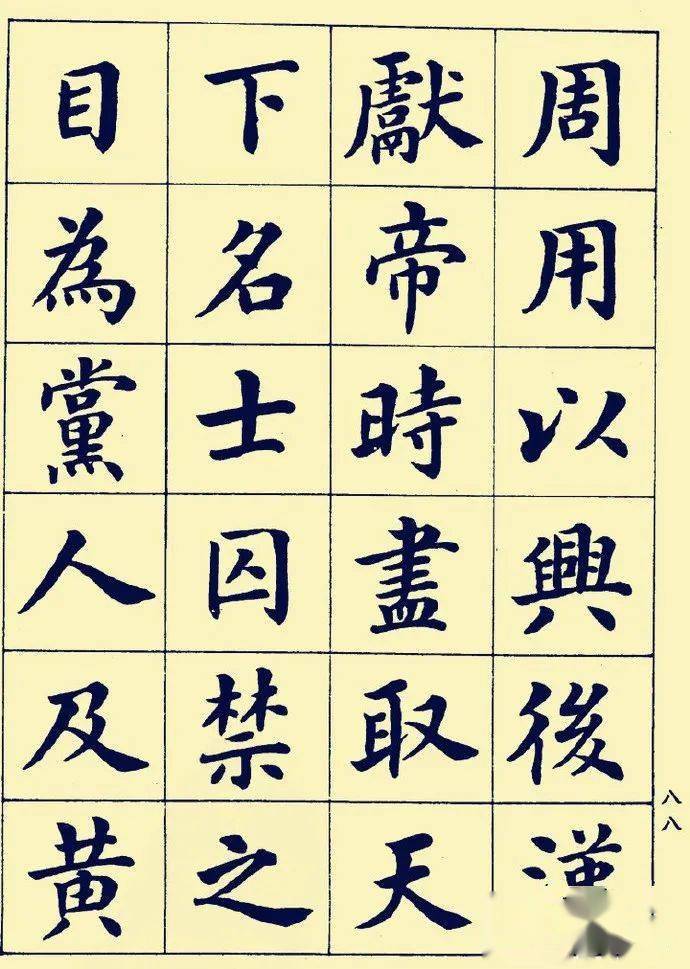 周用以興後漢
獻帝時盡取天
下名士囚禁之
目為黨人及黄
八八